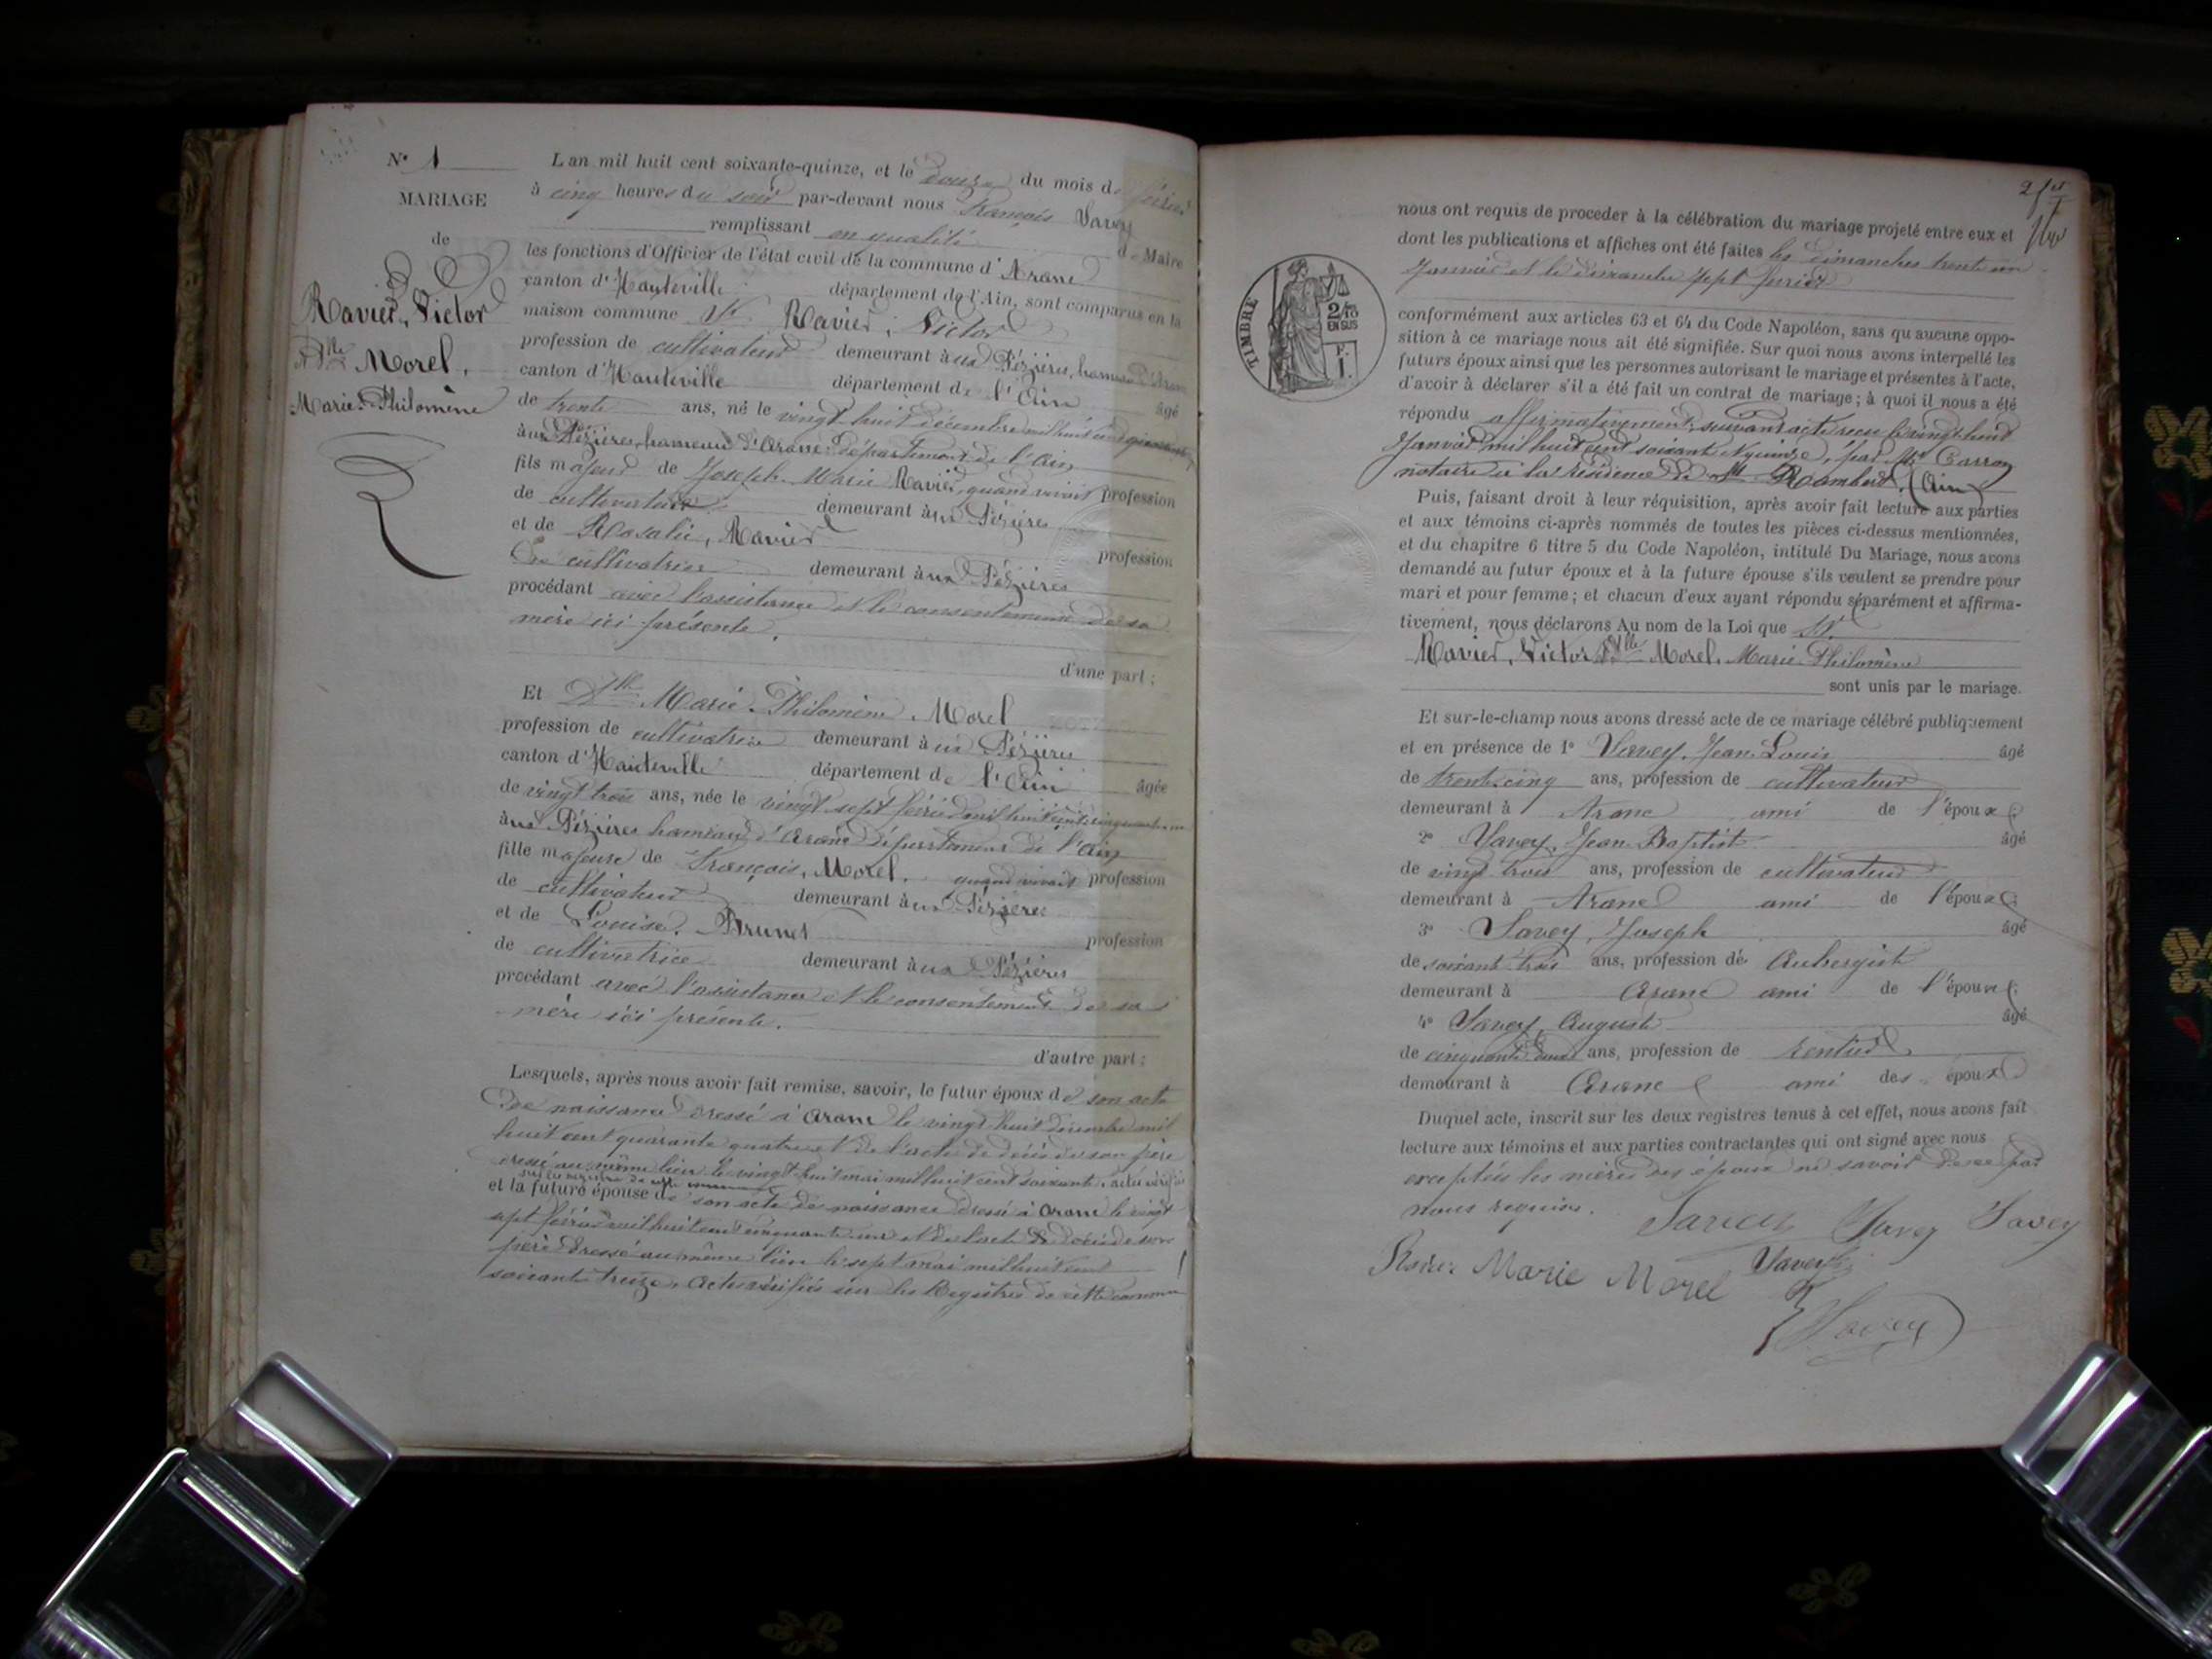 N° 1
MARIAGE
de
Ravier, Victor
& Dlle Morel,
Marie-Philomène
L'an mil huit cent soixante-quinze, et le douze du mois de février
à cinq heures du soir par-devant nous François Savey
remplissant en qualité de Maire
les fonctions d'Officier de l'état civil de la commune d'Aranc
canton d'Hauteville département de l'Ain, sont comparus en la
maison commune Sr. Ravier, Victor
profession de cultivateur demeurant aux Pézières, hameau d'Aranc
canton d'Hauteville département de l'Ain âgé
de trente ans, né le vingt huit décembre mil huit cent quarante
aux Pézières, hameau d'Aranc département de l'Ain
fils majeur de Joseph-Marie Ravier, quand vivait profession
de cultivateur demeurant aux Pézières
et de Rosalie, Ravier profession
de cultivatrice demeurant aux Pézières
procédant avec l'assistance et le consentement de sa
mère ici présente.
d'une part ;
Et Dlle Marie-Philomène Morel
profession de cultivatrice demeurant aux Pézières
canton d'Hauteville département de l'Ain âgée
de vingt trois ans, née le vingt sept février mil huit cent cinquante un
aux Pézières hameau d'Aranc département de l'Ain
fille majeure de François, Morel, quand vivait profession
de cultivateur demeurant aux Pézières
et de Louise, Brunet profession
de cultivatrice demeurant aux Pézières
procédant avec l'assistance et le consentement de sa
mère ici présente.
d'autre part ;
Lesquels, après nous avoir fait remise, savoir, le futur époux de son acte
de naissance dressé à Aranc le vingt huit décembre mil
huit cent quarante quatre et de l'acte de décès de son père
dressé au même lieu le vingt huit mai mil huit cent soixante, actes vérifiés
sur les registres de cette commune
et la future épouse de son acte de naissance dressé à Aranc le vingt
sept février mil huit cent cinquante un et de l'acte de décès de son
père dressé au même lieu le sept mai mil huit cent
soixante treize, actes vérifiés sur les Registres de cette commune
nous ont requis de proceder à la célébration du mariage projeté entre eux et
dont les publications et affiches ont été faites les dimanches trente un
Janvier et le dimanche sept février
TIMBRE
2/10
EN SUS
F.
1.
conformément aux articles 63 et 64 du Code Napoléon, sans qu'aucune oppo-
sition à ce mariage nous ait été signifiée. Sur quoi nous avons interpellé les
futurs époux ainsi que les personnes autorisant le mariage et présentes à l'acte,
d'avoir à déclarer s'il a été fait un contrat de mariage ; à quoi il nous a été
répondu affirmativement, suivant acte reçu le vingt huit
Janvier mil huit cent soixante et quinze, par Me Carron
notaire à la résidence de St Rambert, (Ain)
Puis, faisant droit à leur réquisition, après avoir fait lecture aux parties
et aux témoins ci-après nommés de toutes les pièces ci-dessus mentionnées,
et du chapitre 6 titre 5 du Code Napoléon, intitulé Du Mariage, nous avons
demandé au futur époux et à la future épouse s'ils veulent se prendre pour
mari et pour femme ; et chacun d'eux ayant répondu séparément et affirma-
tivement, nous déclarons Au nom de la Loi que Sr.
Ravier, Victor & Dlle Morel, Marie-Philomène
sont unis par le mariage.
Et sur-le-champ nous avons dressé acte de ce mariage célébré publiquement
et en présence de 1° Savey, Jean-Louis âgé
de trente cinq ans, profession de cultivateur
demeurant à Aranc ami de l'époux
2° Savey, Jean-Baptist âgé
de vingt trois ans, profession de cultivateur
demeurant à Aranc ami de l'époux
3° Savey, Joseph âgé
de soixante trois ans, profession de Aubergiste
demeurant à Aranc ami de l'époux
4° Savey, Auguste âgé
de cinquante ans, profession de rentier
demeurant à Aranc ami des époux
Duquel acte, inscrit sur les deux registres tenus à cet effet, nous avons fait
lecture aux témoins et aux parties contractantes qui ont signé avec nous
exceptées les mères des époux ne savoir de ce par
nous requises.
Savey Savey Savey
Ravier Marie Morel Savey
Savey